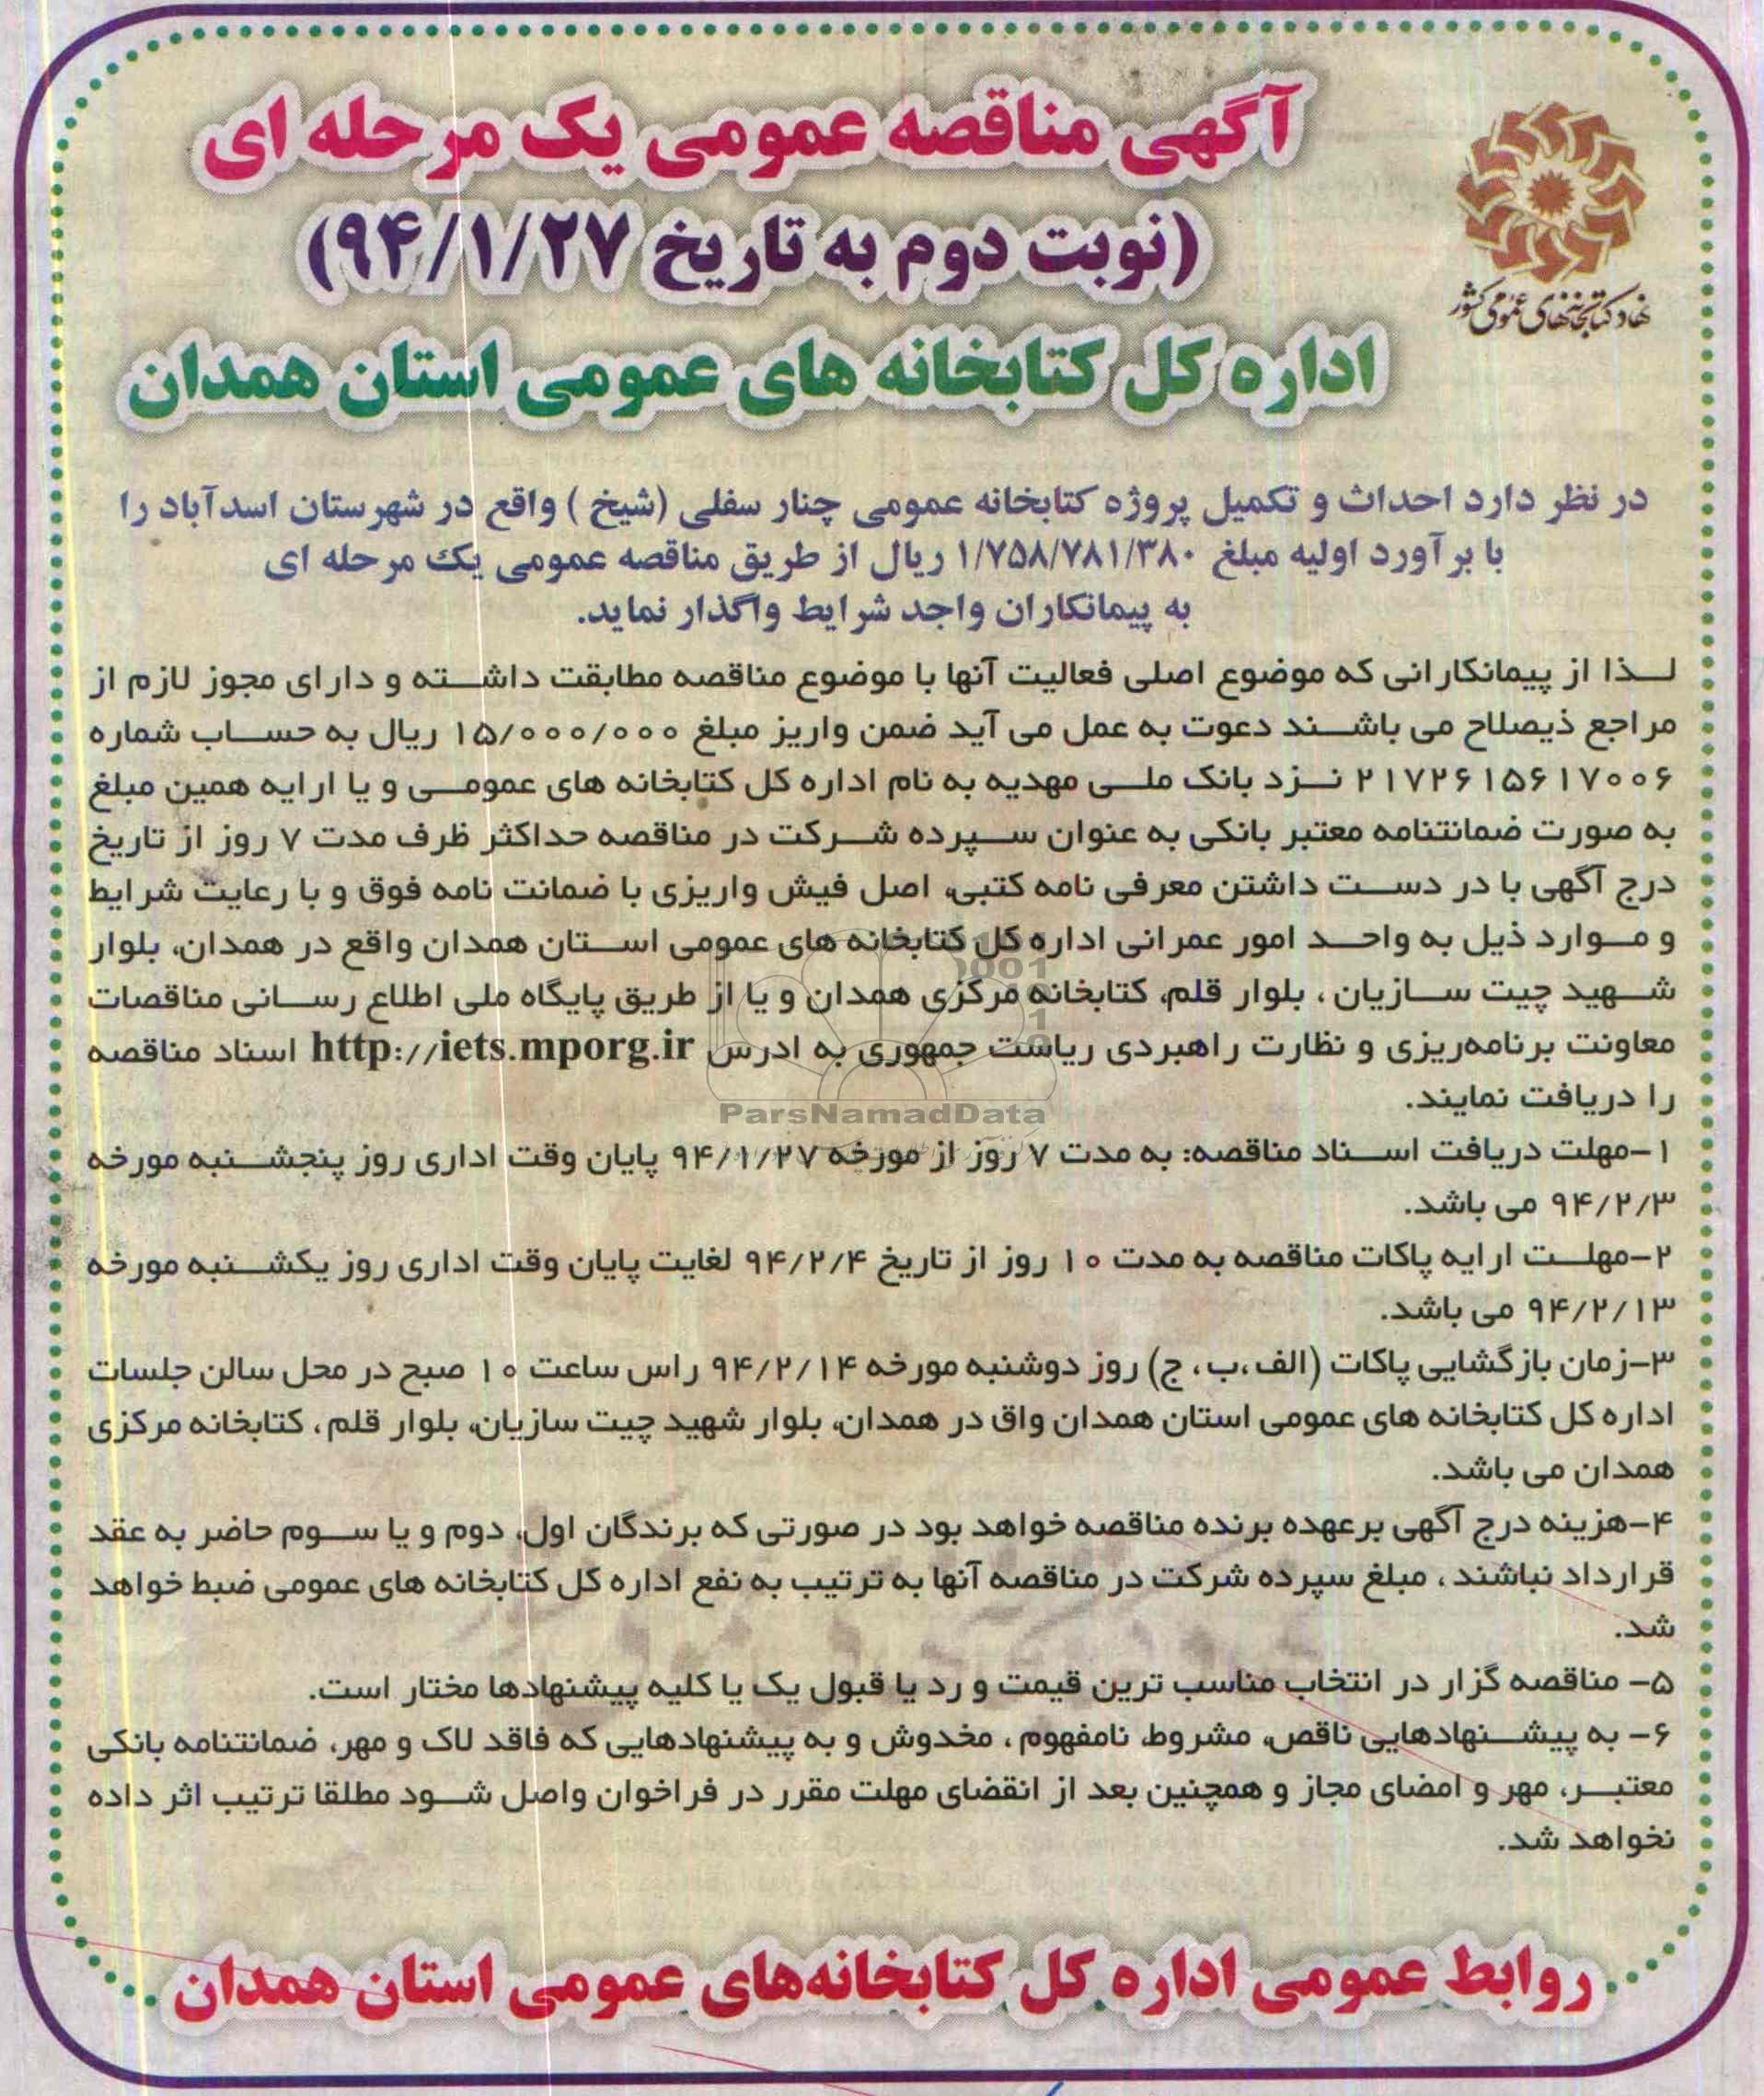 آگهی مناقصه عمومی یک مرحله ای
(نوبت دوم به تاریخ ۹۴/۱/۲۷)
نهاد کتابخانه‌های عمومی کشور
اداره کل کتابخانه های عمومی استان همدان
در نظر دارد احداث و تکمیل پروژه کتابخانه عمومی چنار سفلی (شیخ ) واقع در شهرستان اسدآباد را
با برآورد اولیه مبلغ ۱/۷۵۸/۷۸۱/۳۸۰ ریال از طریق مناقصه عمومی یک مرحله ای
به پیمانکاران واجد شرایط واگذار نماید.
لذا از پیمانکارانی که موضوع اصلی فعالیت آنها با موضوع مناقصه مطابقت داشته و دارای مجوز لازم از
مراجع ذیصلاح می باشند دعوت به عمل می آید ضمن واریز مبلغ ۱۵/۰۰۰/۰۰۰ ریال به حساب شماره
۲۱۷۲۶۱۵۶۱۷۰۰۶ نزد بانک ملی مهدیه به نام اداره کل کتابخانه های عمومی و یا ارایه همین مبلغ
به صورت ضمانتنامه معتبر بانکی به عنوان سپرده شرکت در مناقصه حداکثر ظرف مدت ۷ روز از تاریخ
درج آگهی با در دست داشتن معرفی نامه کتبی، اصل فیش واریزی با ضمانت نامه فوق و با رعایت شرایط
و موارد ذیل به واحد امور عمرانی اداره کل کتابخانه های عمومی استان همدان واقع در همدان، بلوار
شهید چیت سازیان ، بلوار قلم، کتابخانه مرکزی همدان و یا از طریق پایگاه ملی اطلاع رسانی مناقصات
معاونت برنامه‌ریزی و نظارت راهبردی ریاست جمهوری به ادرس http://iets.mporg.ir اسناد مناقصه
را دریافت نمایند.
ParsNamadData
۱-مهلت دریافت اسناد مناقصه: به مدت ۷ روز از مورخه ۹۴/۱/۲۷ پایان وقت اداری روز پنجشنبه مورخه
۹۴/۲/۳ می باشد.
۲-مهلت ارایه پاکات مناقصه به مدت ۱۰ روز از تاریخ ۹۴/۲/۴ لغایت پایان وقت اداری روز یکشنبه مورخه
۹۴/۲/۱۳ می باشد.
۳-زمان بازگشایی پاکات (الف،ب، ج) روز دوشنبه مورخه ۹۴/۲/۱۴ راس ساعت ۱۰ صبح در محل سالن جلسات
اداره کل کتابخانه های عمومی استان همدان واق در همدان، بلوار شهید چیت سازیان، بلوار قلم ، کتابخانه مرکزی
همدان می باشد.
۴-هزینه درج آگهی برعهده برنده مناقصه خواهد بود در صورتی که برندگان اول، دوم و یا سوم حاضر به عقد
قرارداد نباشند ، مبلغ سپرده شرکت در مناقصه آنها به ترتیب به نفع اداره کل کتابخانه های عمومی ضبط خواهد
شد.
۵- مناقصه گزار در انتخاب مناسب ترین قیمت و رد یا قبول یک یا کلیه پیشنهادها مختار است.
۶- به پیشنهادهایی ناقص، مشروط، نامفهوم ، مخدوش و به پیشنهادهایی که فاقد لاک و مهر، ضمانتنامه بانکی
معتبر، مهر و امضای مجاز و همچنین بعد از انقضای مهلت مقرر در فراخوان واصل شود مطلقا ترتیب اثر داده
نخواهد شد.
روابط عمومی اداره کل کتابخانه‌های عمومی استان همدان